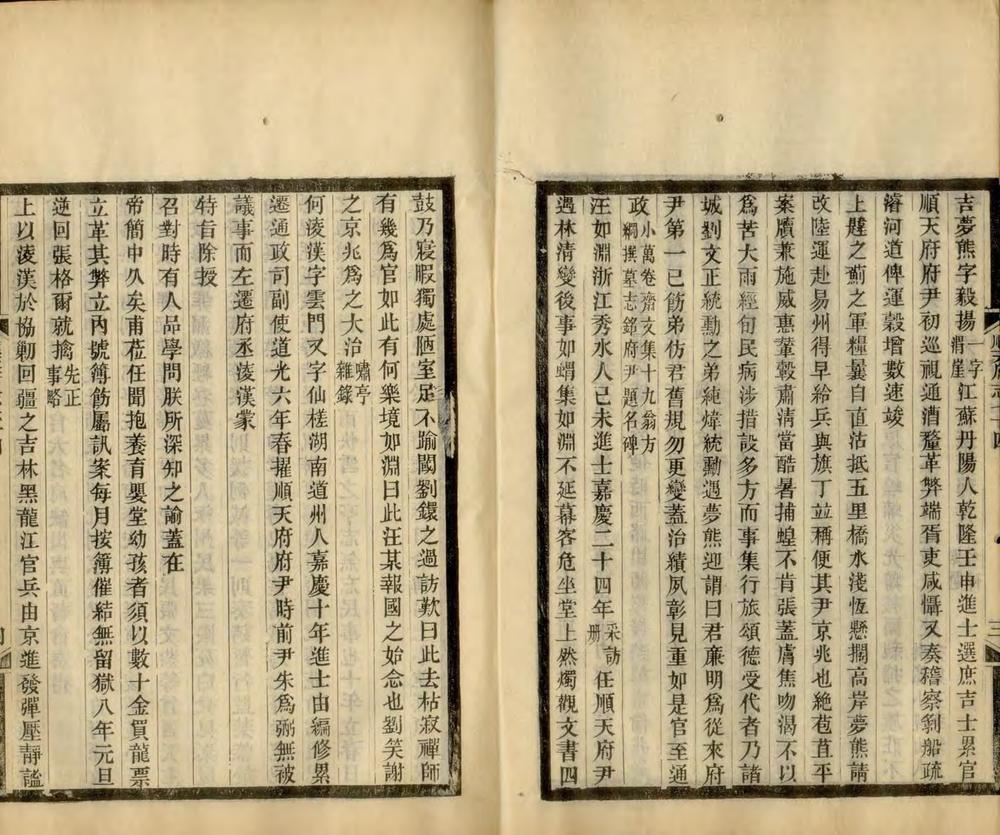 吉夢熊字毅揚一字渭崖江蘇丹陽人乾隆壬申進士選庶吉士累官
順天府府尹初巡視通漕釐革弊端胥吏咸懾又奏稽察剝船疏
濬河道俾運穀增數速竣
上韙之薊之軍糧曩自直沽抵五里橋水淺恆懸擱高岸夢熊請
改陸運赴易州得早給兵與旗丁竝稱便其尹京兆也絶苞苴平
案牘兼施威惠輦轂肅清當酷暑捕蝗不肯張蓋膚焦吻渴不以
爲苦大雨經旬民病涉措設多方而事集行旅頌德受代者乃諸
城劉文正統勳之弟純煒統勳遇夢熊迎謂曰君廉明爲從來府
尹第一已飭弟仿君舊規勿更變蓋治績夙彰見重如是官至通
政小萬卷齋文集十九翁方綱撰墓志銘府尹題名碑
汪如淵浙江秀水人己未進士嘉慶二十四年采訪册任順天府尹
遇林清變後事如蝟集如淵不延幕客危坐堂上然燭觀文書四
鼓乃寢暇獨處陋室足不踰閾劉鐶之過訪歎曰此去枯寂禪師
有幾爲官如此有何樂境如淵曰此汪某報國之始念也劉笑謝
之京兆爲之大治嘯亭雜錄
何淩漢字雲門又字仙槎湖南道州人嘉慶十年進士由編修累
遷通政司副使道光六年春擢順天府府尹時前尹朱爲弼無被
議事而左遷府丞淩漢蒙
特旨除授
召對時有人品學問朕所深知之諭蓋在
帝簡中久矣甫莅任聞抱養育嬰堂幼孩者須以數十金買龍票
立革其弊立內號簿飭屬訊案每月按簿催結無留獄八年元旦
逆回張格爾就擒先正事略
上以淩漢於協勦回疆之吉林黑龍江官兵由京進發彈壓靜謐